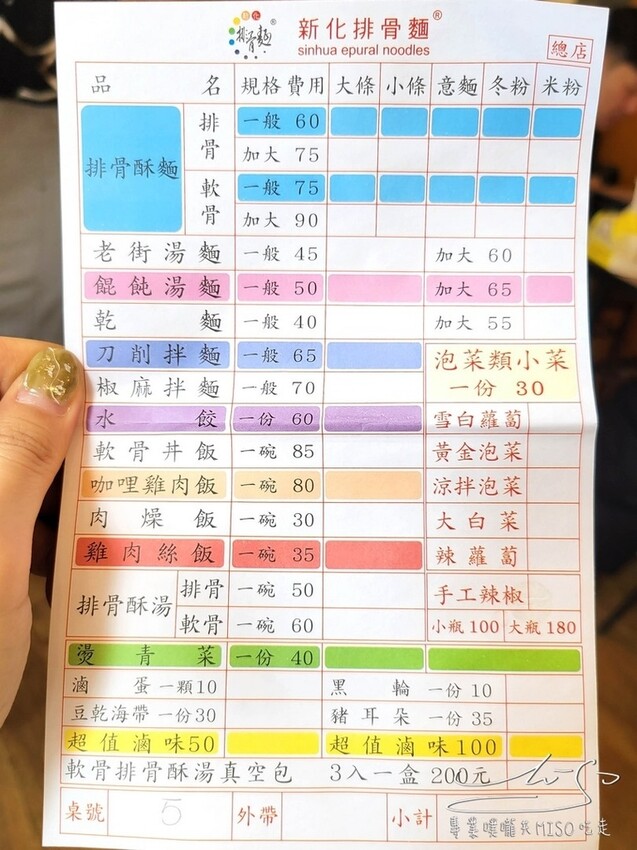 新化 排骨麵®
新化排骨麵®
sinhua epural noodles
總店
品名 規格 費用 大條 小條 意麵 冬粉 米粉
排骨酥麵 排骨 一般 60
加大 75
軟骨 一般 75
加大 90
老街湯麵 一般 45 加大 60
餛飩湯麵 一般 50 加大 65
乾麵 一般 40 加大 55
刀削拌麵 一般 65 泡菜類小菜
一份 30
椒麻拌麵 一般 70
水餃 一份 60 雪白蘿蔔
軟骨丼飯 一碗 85 黃金泡菜
咖哩雞肉飯 一碗 80 涼拌泡菜
肉燥飯 一碗 30 大白菜
雞肉絲飯 一碗 35 辣蘿蔔
排骨酥湯 排骨 一碗 50 手工辣椒
軟骨 一碗 60 小瓶100 大瓶180
燙青菜 一份 40
滷蛋 一顆10 黑輪 一份 10
豆乾海帶 一份30 豬耳朵 一份 35
超值滷味50 超值滷味100
軟骨排骨酥湯真空包 3入一盒 200元
桌號 5 外帶 小計
專業噗嚨共MISO吃走